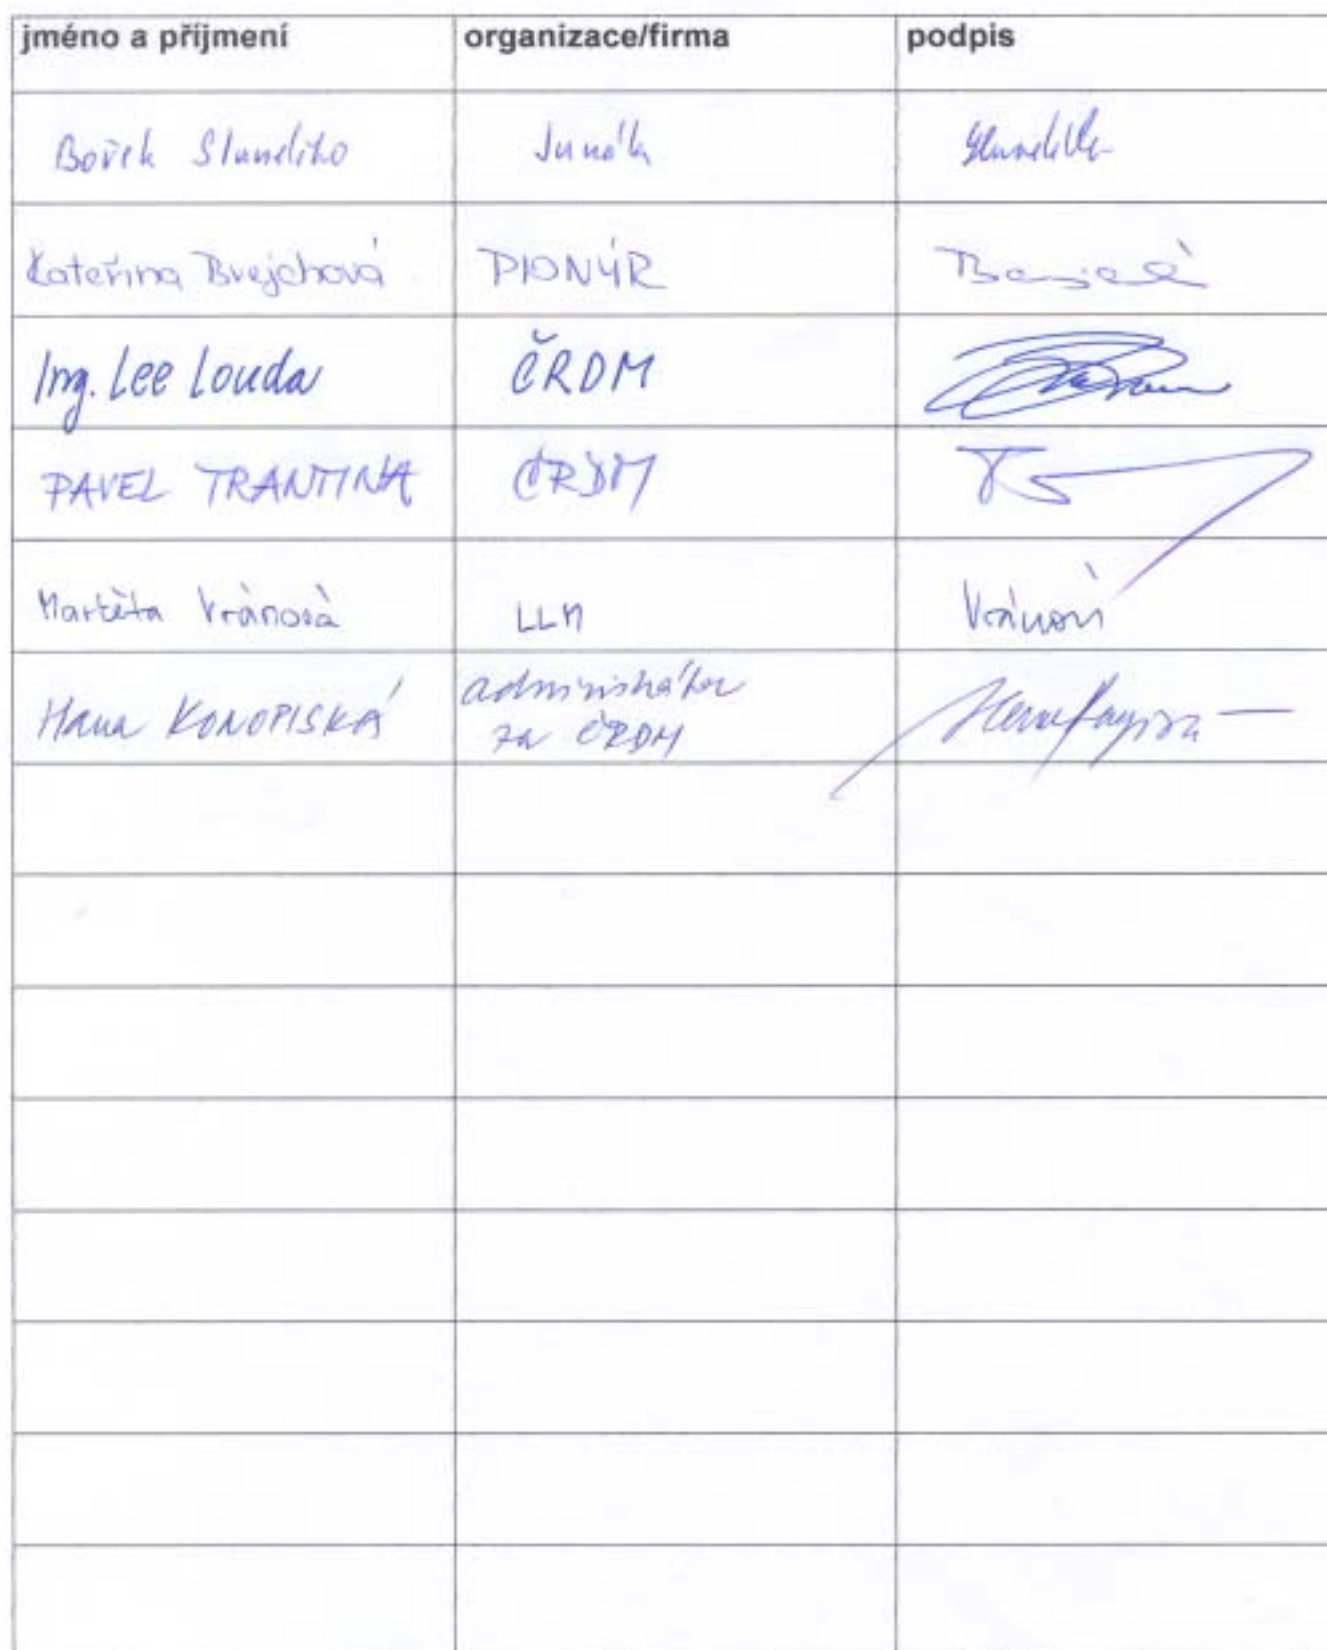 jméno a příjmení organizace/firma podpis
Bořek Slunéčko Junák
Kateřina Brejchová PIONÝR
Ing. Lee Louda ČRDM
PAVEL TRANTINA ČRDM
Markéta Vránová LLM Vránová
Hana KONOPISKÁ administrátor
za ČRDM